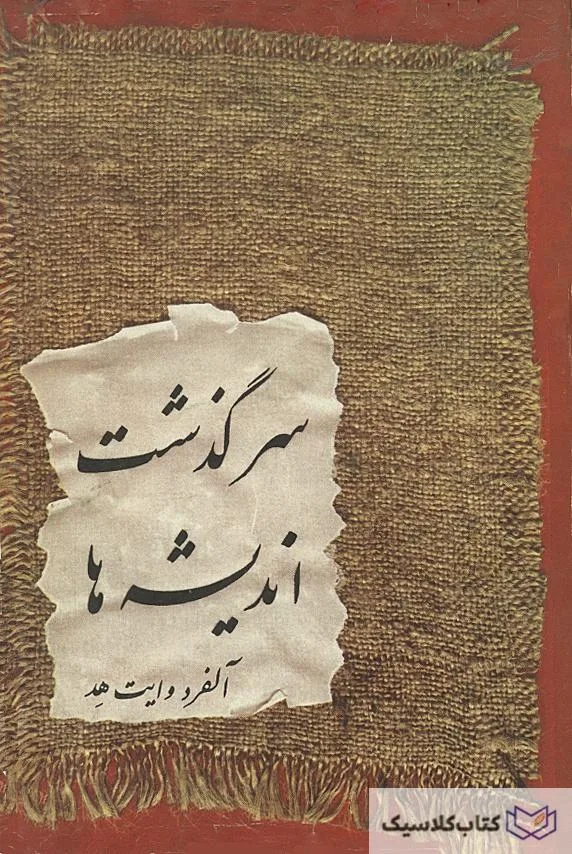 سرگذشت
اندیشه ها
آلفرد وایت هِد
کتاب کلاسیک